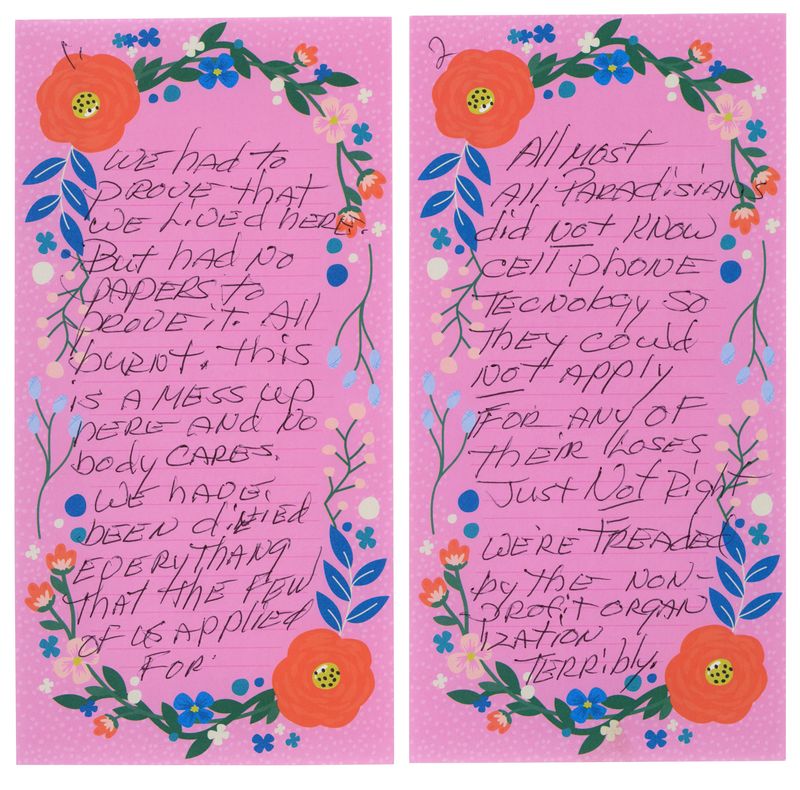 1.
WE had to
PROVE that
WE Lived here.
But had No
PAPERS to
PROVE it. All
burnt. this
is A MESS up
HERE AND NO
body CARES.
WE have
BEEN dinied
EVERYTHANG
that the FEW
of us APPlied
FOR.
2
All Most
All PARAdisiAns
did Not KNOW
CEll phONE
TECNology SO
They could
Not APPly
FOR ANY OF
their LOSES
Just Not Right
WE'RE TREAded
by the NON-
PROfit ORGAN
IZATION
TERRibly.